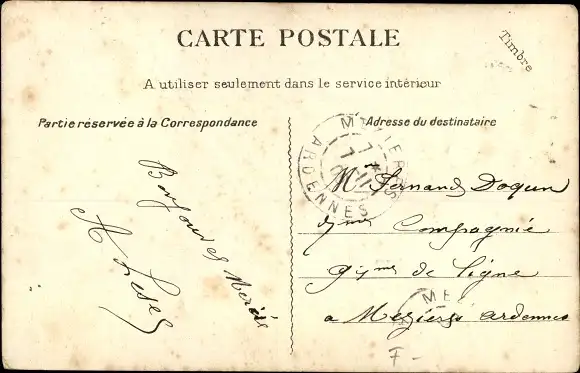 CARTE POSTALE
Timbre
A utiliser seulement dans le service intérieur
Partie réservée à la Correspondance
Adresse du destinataire
MEZIERES
ARDENNES
Bonjour de
Mr Fernand Doquin
7me Compagnie
91me de Ligne
a Mezieres Ardennes
ME
F-